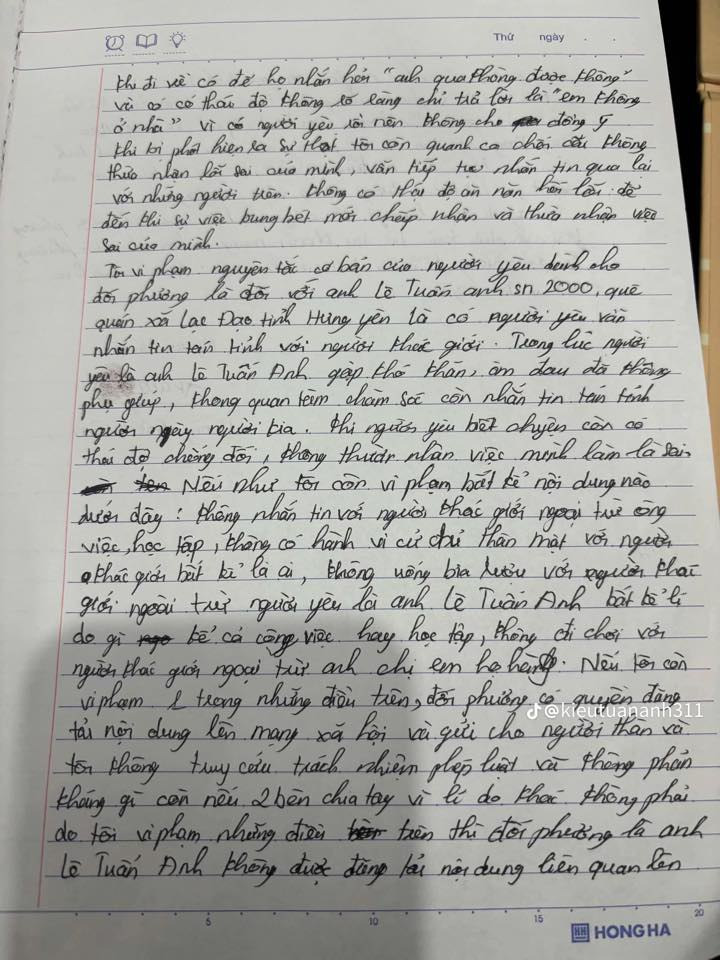 Thứ ngày . .
khi đi về có để họ nhắn hỏi "anh qua không được không"
và có thái độ không rõ ràng chỉ trả lời là "em không
ở nhà" vì có người yêu rồi nên không cho đồng ý
khi bị phát hiện ra sự thật tôi còn quanh co chối cãi không
thừa nhận lỗi sai của mình, vẫn tiếp tục nhắn tin qua lại
với những người trên. Không có thái độ ăn năn hối lỗi để
đến khi sự việc bung bét mới chấp nhận và thừa nhận việc
sai của mình.
Tôi vi phạm nguyên tắc cơ bản của người yêu dành cho
đối phương là đối với anh Lê Tuấn anh sn 2000, quê
quán xã Lạc Đạo tỉnh Hưng yên là có người yêu vẫn
nhắn tin tán tỉnh với người khác giới. Trong lúc người
yêu là anh Lê Tuấn Anh gặp khó khăn, ốm đau đã không
phụ giúp, không quan tâm chăm sóc còn nhắn tin tán tỉnh
người này người kia. Khi người yêu biết chuyện còn có
thái độ chống đối, không thừa nhận việc mình làm là sai
Nếu như tôi còn vi phạm bất kể nội dung nào
dưới đây: không nhắn tin với người khác giới ngoại trừ công
việc, học tập, không có hành vi cử chỉ thân mật với người
khác giới bất kể là ai, không uống bia rượu với người khác
giới ngoài trừ người yêu là anh Lê Tuấn Anh bất kể lí
do gì kể cả công việc hay học tập, không đi chơi với
người khác giới ngoại trừ anh chị em họ hàng. Nếu tôi còn
vi phạm 1 trong những điều trên, đối phương có quyền đăng
tải nội dung lên mạng xã hội và gửi cho người thân và
tôi không truy cứu trách nhiệm pháp luật và không phản
kháng gì còn nếu 2 bên chia tay vì lí do khác không phải
do tôi vi phạm những điều trên thì đối phương là anh
Lê Tuấn Anh không được đăng tải nội dung liên quan lên
@kieutuananh311
5 10 15 20
HH HONG HA